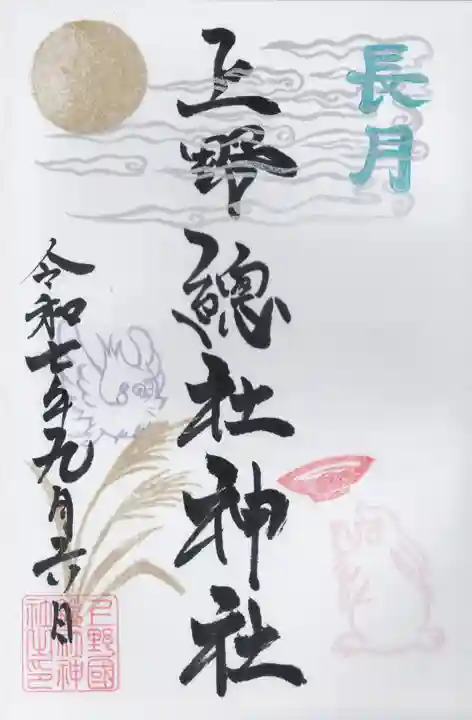 長月
上野總社神社
令和七年九月六日
上野國
總社神
社之印